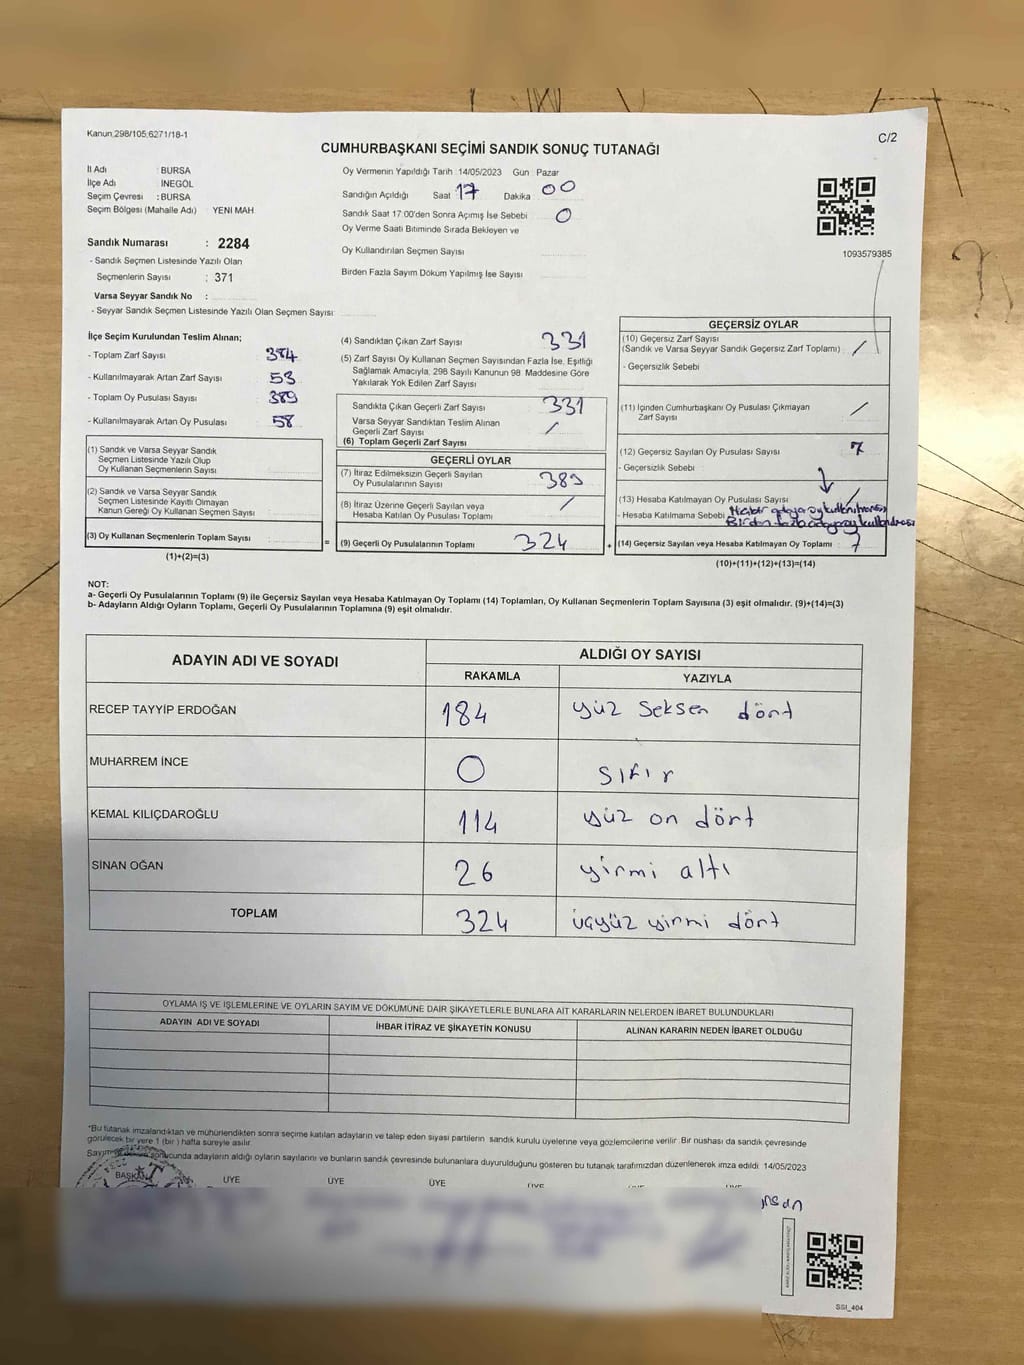 Kanun 298/105,6271/18-1
C/2
CUMHURBAŞKANI SEÇİMİ SANDIK SONUÇ TUTANAĞI
İl Adı : BURSA
İlçe Adı : İNEGÖL
Seçim Çevresi : BURSA
Seçim Bölgesi (Mahalle Adı) YENİ MAH.
Sandık Numarası : 2284
- Sandık Seçmen Listesinde Yazılı Olan
Seçmenlerin Sayısı : 371
Varsa Seyyar Sandık No :
- Seyyar Sandık Seçmen Listesinde Yazılı Olan Seçmen Sayısı:
Oy Vermenin Yapıldığı Tarih :14/05/2023 Gün Pazar
Sandığın Açıldığı Saat 17 Dakika 00
Sandık Saat 17:00'den Sonra Açımış İse Sebebi 0
Oy Verme Saati Bitiminde Sırada Bekleyen ve
Oy Kullandırılan Seçmen Sayısı
Birden Fazla Sayım Döküm Yapılmış İse Sayısı
1093579385
İlçe Seçim Kurulundan Teslim Alınan;
- Toplam Zarf Sayısı 384
- Kullanılmayarak Artan Zarf Sayısı 53
- Toplam Oy Pusulası Sayısı 389
- Kullanılmayarak Artan Oy Pusulası 58
(1) Sandık ve Varsa Seyyar Sandık
Seçmen Listesinde Yazılı Olup
Oy Kullanan Seçmenlerin Sayısı
(2) Sandık ve Varsa Seyyar Sandık
Seçmen Listesinde Kayıtlı Olmayan
Kanun Gereği Oy Kullanan Seçmen Sayısı
(3) Oy Kullanan Seçmenlerin Toplam Sayısı
=
(1)+(2)=(3)
(4) Sandıktan Çıkan Zarf Sayısı 331
(5) Zarf Sayısı Oy Kullanan Seçmen Sayısından Fazla İse, Eşitliği
Sağlamak Amacıyla, 298 Sayılı Kanunun 98 Maddesine Göre
Yakılarak Yok Edilen Zarf Sayısı
Sandıkta Çıkan Geçerli Zarf Sayısı 331
Varsa Seyyar Sandıktan Teslim Alınan
Geçerli Zarf Sayısı /
(6) Toplam Geçerli Zarf Sayısı
GEÇERLİ OYLAR
(7) İtiraz Edilmeksizin Geçerli Sayılan
Oy Pusulalarının Sayısı 389
(8) İtiraz Üzerine Geçerli Sayılan veya
Hesaba Katılan Oy Pusulası Toplamı /
(9) Geçerli Oy Pusulalarının Toplamı 324
+
GEÇERSİZ OYLAR
(10) Geçersiz Zarf Sayısı
(Sandık ve Varsa Seyyar Sandık Geçersiz Zarf Toplamı) /
- Geçersizlik Sebebi
(11) İçinden Cumhurbaşkanı Oy Pusulası Çıkmayan
Zarf Sayısı /
(12) Geçersiz Sayılan Oy Pusulası Sayısı 7
- Geçersizlik Sebebi
(13) Hesaba Katılmayan Oy Pusulası Sayısı /
- Hesaba Katılmama Sebebi Hiçbir adaya oy kullanılmaması
Birden fazla adaya oy kullanılması
(14) Geçersiz Sayılan veya Hesaba Katılmayan Oy Toplamı 7
(10)+(11)+(12)+(13)=(14)
NOT:
a- Geçerli Oy Pusulalarının Toplamı (9) ile Geçersiz Sayılan veya Hesaba Katılmayan Oy Toplamı (14) Toplamları, Oy Kullanan Seçmenlerin Toplam Sayısına (3) eşit olmalıdır. (9)+(14)=(3)
b- Adayların Aldığı Oyların Toplamı, Geçerli Oy Pusulalarının Toplamına (9) eşit olmalıdır.
ADAYIN ADI VE SOYADI
ALDIĞI OY SAYISI
RAKAMLA YAZIYLA
RECEP TAYYİP ERDOĞAN 184 yüz seksen dört
MUHARREM İNCE 0 sıfır
KEMAL KILIÇDAROĞLU 114 yüz on dört
SİNAN OĞAN 26 yirmi altı
TOPLAM 324 üçyüz yirmi dört
OYLAMA İŞ VE İŞLEMLERİNE VE OYLARIN SAYIM VE DÖKÜMÜNE DAİR ŞİKAYETLERLE BUNLARA AİT KARARLARIN NELERDEN İBARET BULUNDUKLARI
ADAYIN ADI VE SOYADI İHBAR İTİRAZ VE ŞİKAYETİN KONUSU ALINAN KARARIN NEDEN İBARET OLDUĞU
*Bu tutanak imzalandıktan ve mühürlendikten sonra seçime katılan adayların ve talep eden siyasi partilerin sandık kurulu üyelerine veya gözlemcilerine verilir. Bir nushası da sandık çevresinde
görülecek bir yere 1 (bir ) hafta süreyle asılır.
Sayım sonucunda adayların aldığı oyların sayılarını ve bunların sandık çevresinde bulunanlara duyurulduğunu gösteren bu tutanak tarafımızdan düzenlenerek imza edildi. 14/05/2023
BAŞKAN ÜYE ÜYE ÜYE ÜYE
SSİ_404